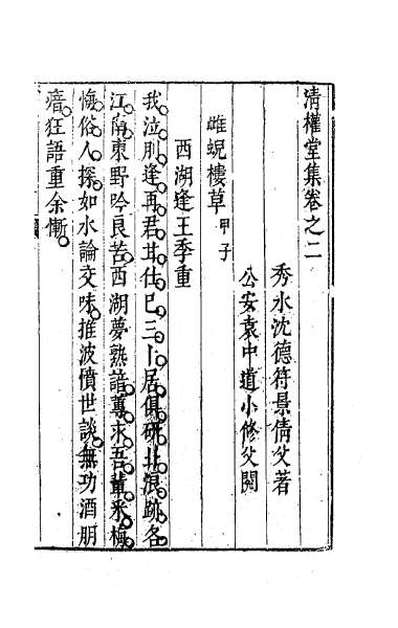 清權堂集卷之二
秀水沈德符景倩父著
公安袁中道小修父閱
雌蜺樓草 甲子
西湖逢王季重
我泣刖逢再君甘仕已三卜居俱研北混跡各
江南東野吟良苦西湖夢熟諳蓴求吾輩采梅
悔俗人探如水論交味推波憤世談無功酒朋
瘖狂語重余慚